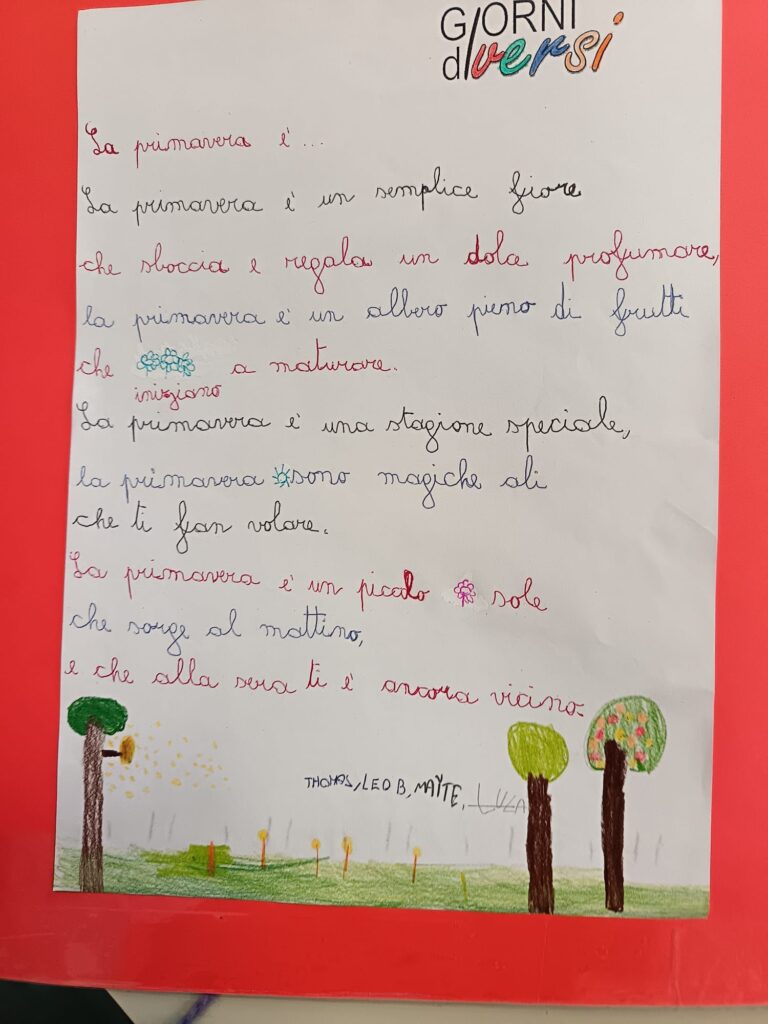 GIORNI
diversi
La primavera è...
La primavera è un semplice fiore
che sboccia e regala un dolce profumare,
la primavera è un albero pieno di frutti
che iniziano a maturare.
La primavera è una stagione speciale,
la primavera sono magiche ali
che ti fan volare.
La primavera è un piccolo sole
che sorge al mattino,
e che alla sera ti è ancora vicino.
THOMAS, LEO B, MAYTE, LUCA